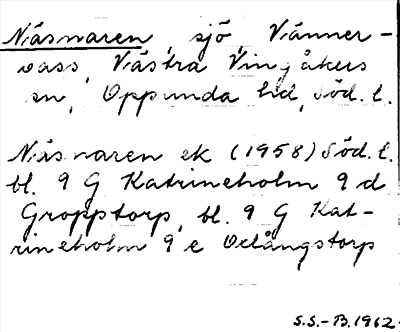 Näsnaren, sjö, Vänner-
vass, Västra Vingåkers
sn, Oppunda hd, Söd. l.
Näsnaren ek (1958) Söd. l.
bl. 9 G Katrineholm 9 d
Gropptorp, bl. 9 G Kat-
rineholm 9 e Öelångstorp
S.S.-B. 1962